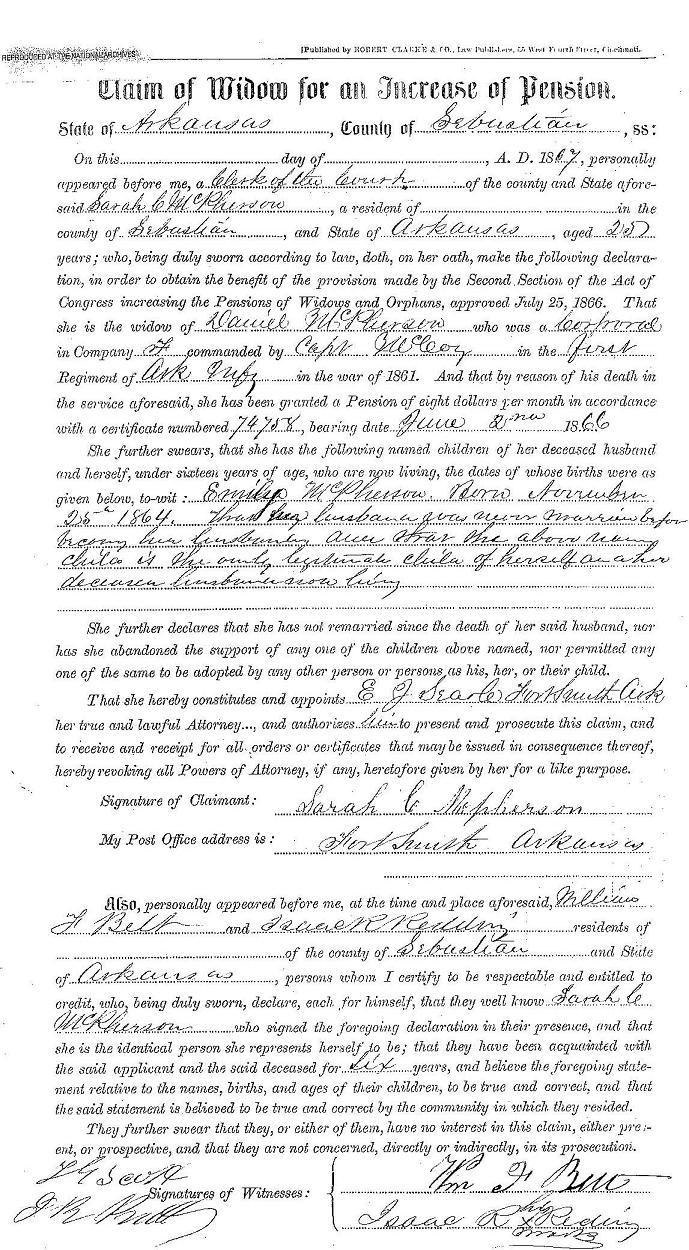 REPRODUCED AT THE NATIONAL ARCHIVES
[Published by ROBERT CLARKE & CO., Law Publishers, 55 West Fourth Street, Cincinnati.
Claim of Widow for an Increase of Pension.
State of Arkansas, County of Sebastian, ss:
On this day of , A. D. 1867, personally
appeared before me, a Clerk of the Court of the county and State afore-
said Sarah C McPherson, a resident of in the
county of Sebastian, and State of Arkansas, aged
years; who, being duly sworn according to law, doth, on her oath, make the following declara-
tion, in order to obtain the benefit of the provision made by the Second Section of the Act of
Congress increasing the Pensions of Widows and Orphans, approved July 25, 1866. That
she is the widow of Daniel McPherson who was a Corporal
in Company F commanded by Capt McCoy in the first
Regiment of Ark Infy in the war of 1861. And that by reason of his death in
the service aforesaid, she has been granted a Pension of eight dollars per month in accordance
with a certificate numbered 74,758, bearing date June 2nd 1866
She further swears, that she has the following named children of her deceased husband
and herself, under sixteen years of age, who are now living, the dates of whose births were as
given below, to-wit: McPherson Born November
25th 1864. That her husband was never married before
becoming her husband and that the above named
child is the only legitimate child of herself and her
deceased husband now living
She further declares that she has not remarried since the death of her said husband, nor
has she abandoned the support of any one of the children above named, nor permitted any
one of the same to be adopted by any other person or persons as his, her, or their child.
That she hereby constitutes and appoints E J Searle Fort Smith Ark
her true and lawful Attorney..., and authorizes him to present and prosecute this claim, and
to receive and receipt for all orders or certificates that may be issued in consequence thereof,
hereby revoking all Powers of Attorney, if any, heretofore given by her for a like purpose.
Signature of Claimant: Sarah C Mcpherson
My Post Office address is: Fort Smith Arkansas
Also, personally appeared before me, at the time and place aforesaid, William
F Belt and Isaac R Redding residents of
of the county of Sebastian and State
of Arkansas, persons whom I certify to be respectable and entitled to
credit, who, being duly sworn, declare, each for himself, that they well know Sarah C
McPherson who signed the foregoing declaration in their presence, and that
she is the identical person she represents herself to be; that they have been acquainted with
the said applicant and the said deceased for six years, and believe the foregoing state-
ment relative to the names, births, and ages of their children, to be true and correct, and that
the said statement is believed to be true and correct by the community in which they resided.
They further swear that they, or either of them, have no interest in this claim, either pres-
ent, or prospective, and that they are not concerned, directly or indirectly, in its prosecution.
Scott Wm F Belt
Signatures of Witnesses:
his
Isaac R x Reding
mark